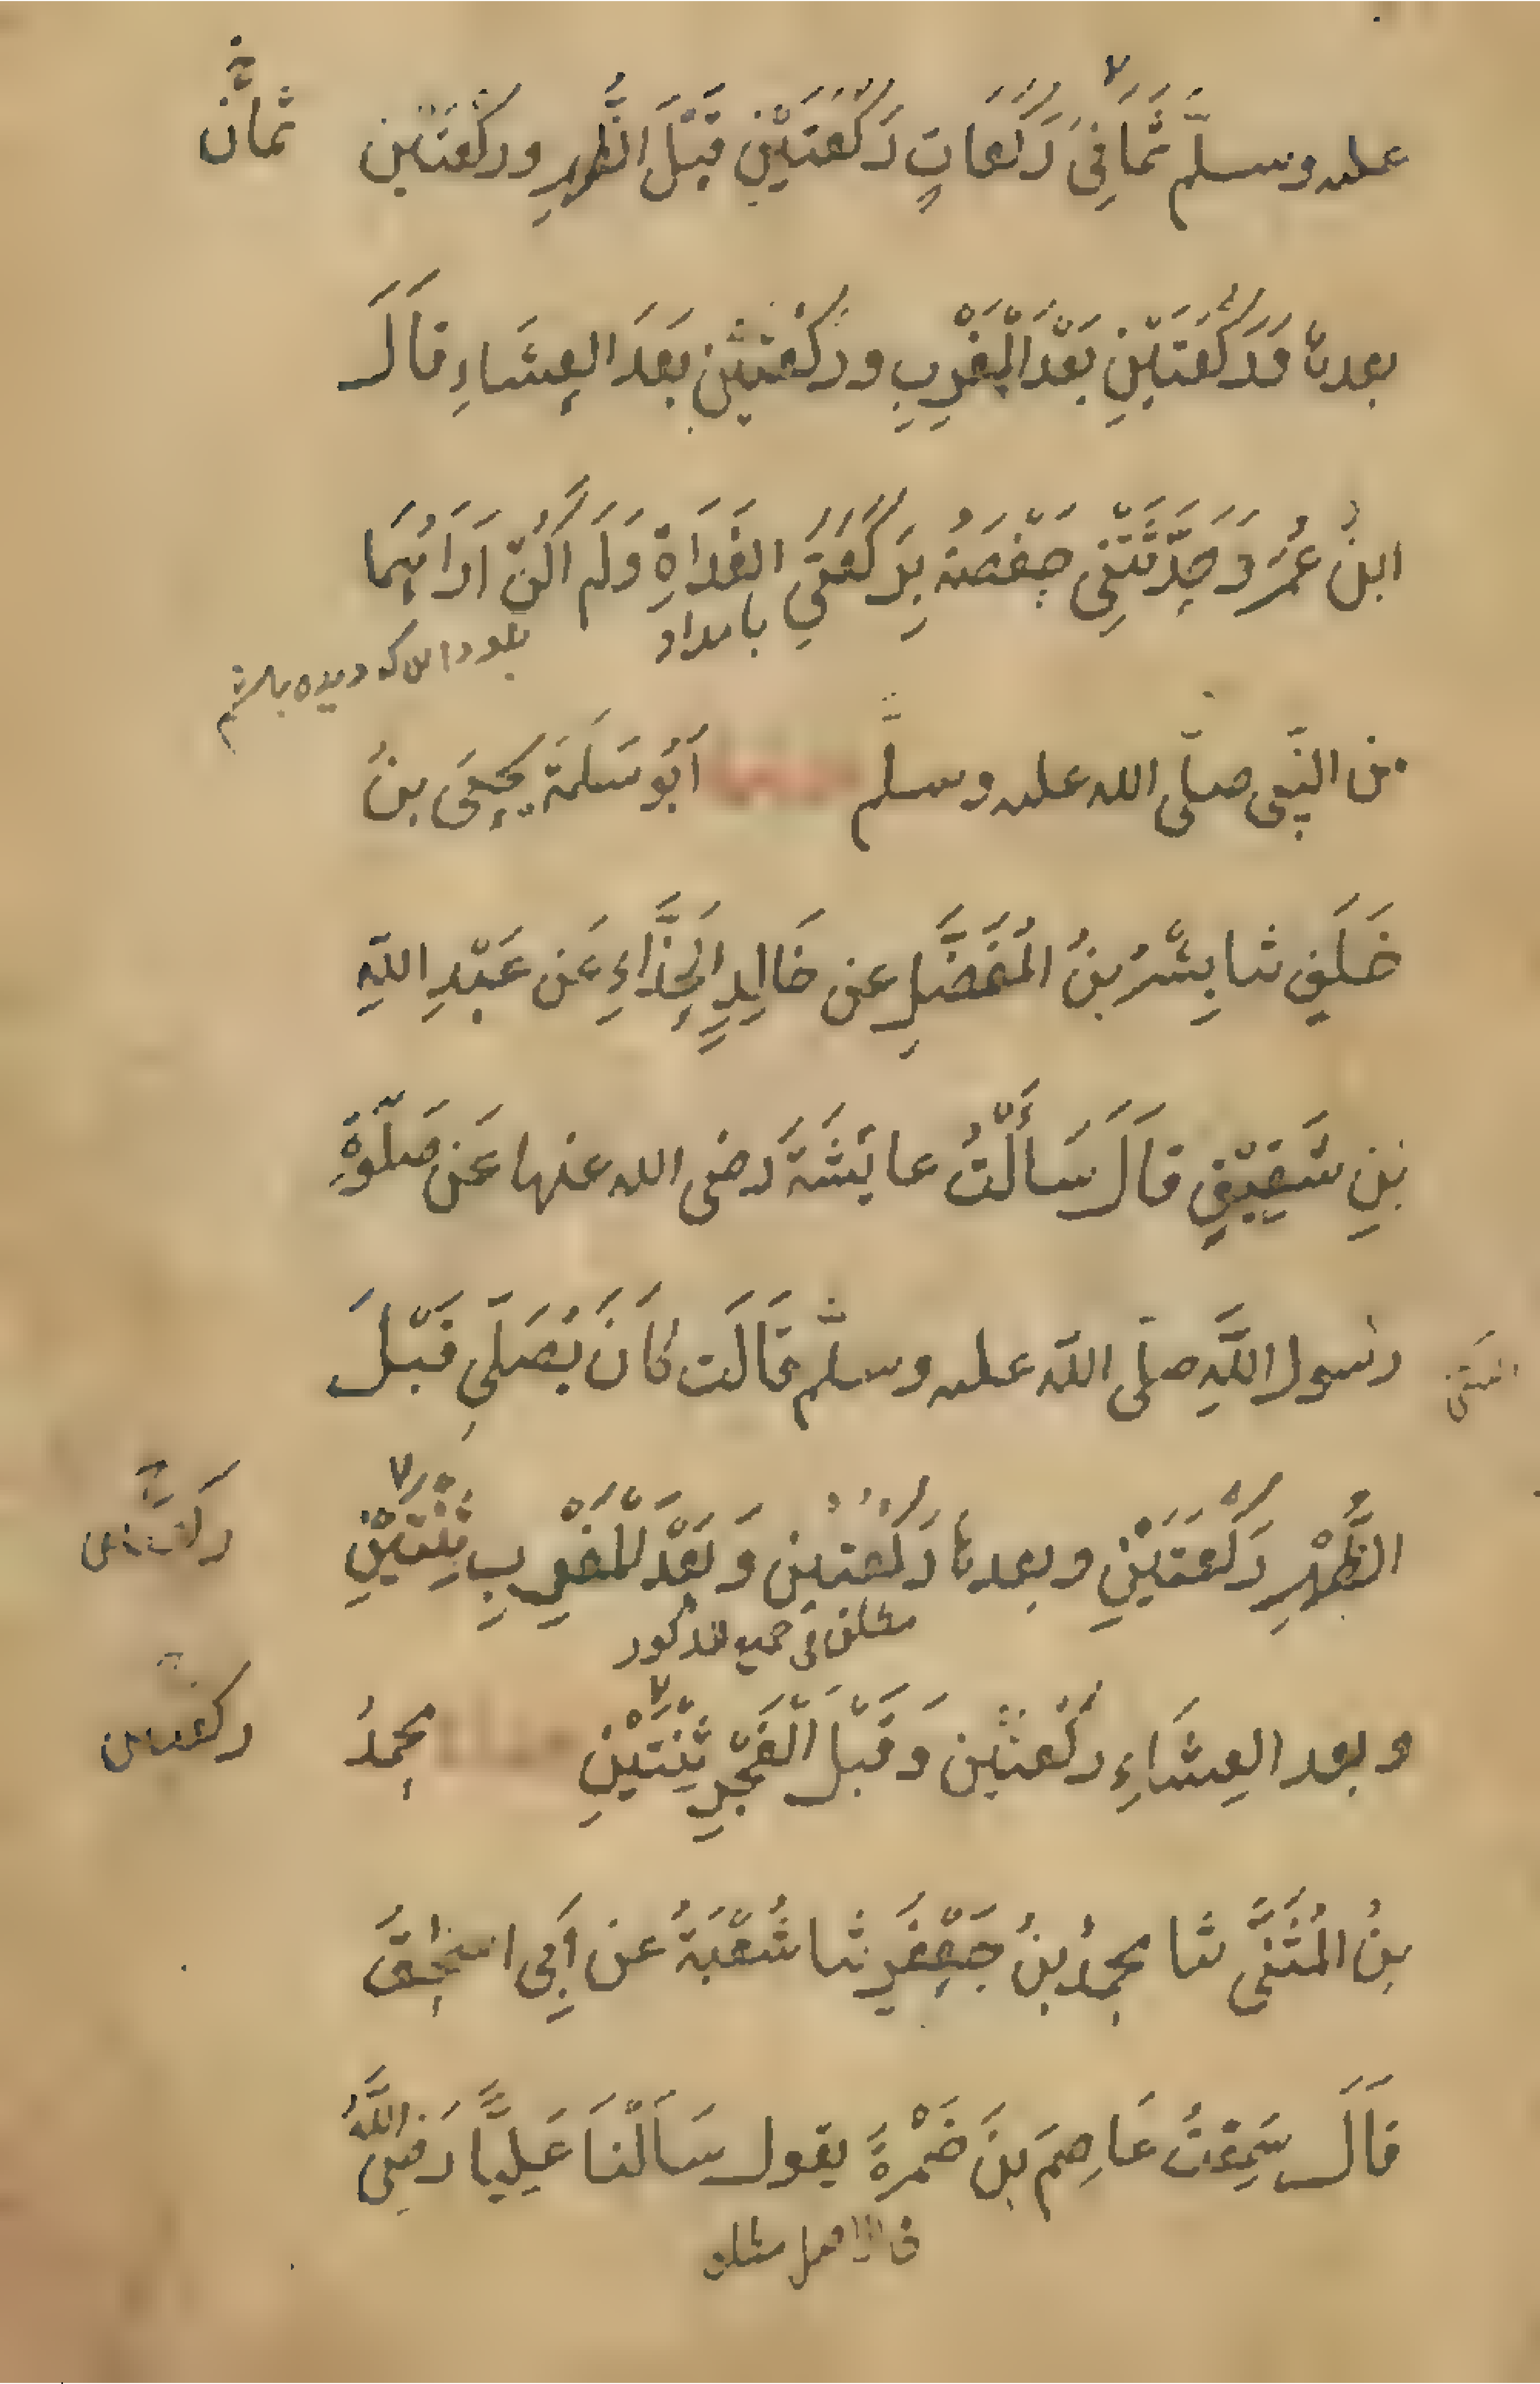 عليه وسلَّم ثَمَانِيَ رَكَعَاتٍ رَكْعَتَيْنِ قَبْلَ الظُّهرِ وركْعَتَين
ثمانَ
بعدها وَرَكْعَتَيْنِ بَعْدَ الْمَغْرِبِ وركْعَتَيْن بَعَدَ العِشَاءِ قَالَ
ابنُ عُمَرَ وَحَدَّثَتْنِى حَفْصَة بِرَكْعَتَيِ الغَدَاةِ وَلَم اَكُنْ اَرَاهُمَا
بامداد
من النَّبِى صلَّى الله عليه وسلَّم
اَبُو سَلَمَةَ يَحيَى بنُ
خَلَفٍ ثنا بِشْرُ بنُ المُفَضَّلِ عن خَالِدٍ الحَذَّاءِ عَن عَبْدِ اللّهِ
بنِ شَقِيْقٍ قالَ سَأَلْتُ عايَشَةَ رضى الله عنها عَن صَلٰوةِ
رسول اللَّهِ صلّى اللّه عليه وسلَّم قَالَت كَانَ يُصَلِّى قَبْلَ
الظُّهْرِ رَكْعَتَيْنِ وبعدها رَكْعَتَين وَبَعْدَ المَغْرِبِ ثِنْتَيْنِ
وبعد العِشَاءِ ركْعَتَين وَقَبْلَ الْفَجْرِ ثِنْتَيْنِ
محمدُ
ركعتىن
بنُ المُثَنَّى ثنا محمدُ بنُ جَعْفَرٍ ثنا شُعْبَةُ عن اَبِى اسحٰقَ
قَالَ سَمِعْتُ عَاصِمَ بنَ ضَمْرةَ يقول سَاَلْنَا عَلِيًّا رَضِىَ اللَّهُ